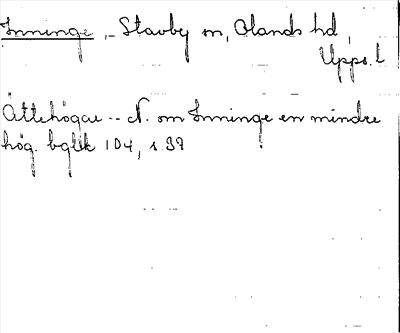 Inninge, - Stavby sn, Olands hd,
Upps. l
Ättehögar -- N. om Inninge en mindre
hög. bglk 104, s. 39